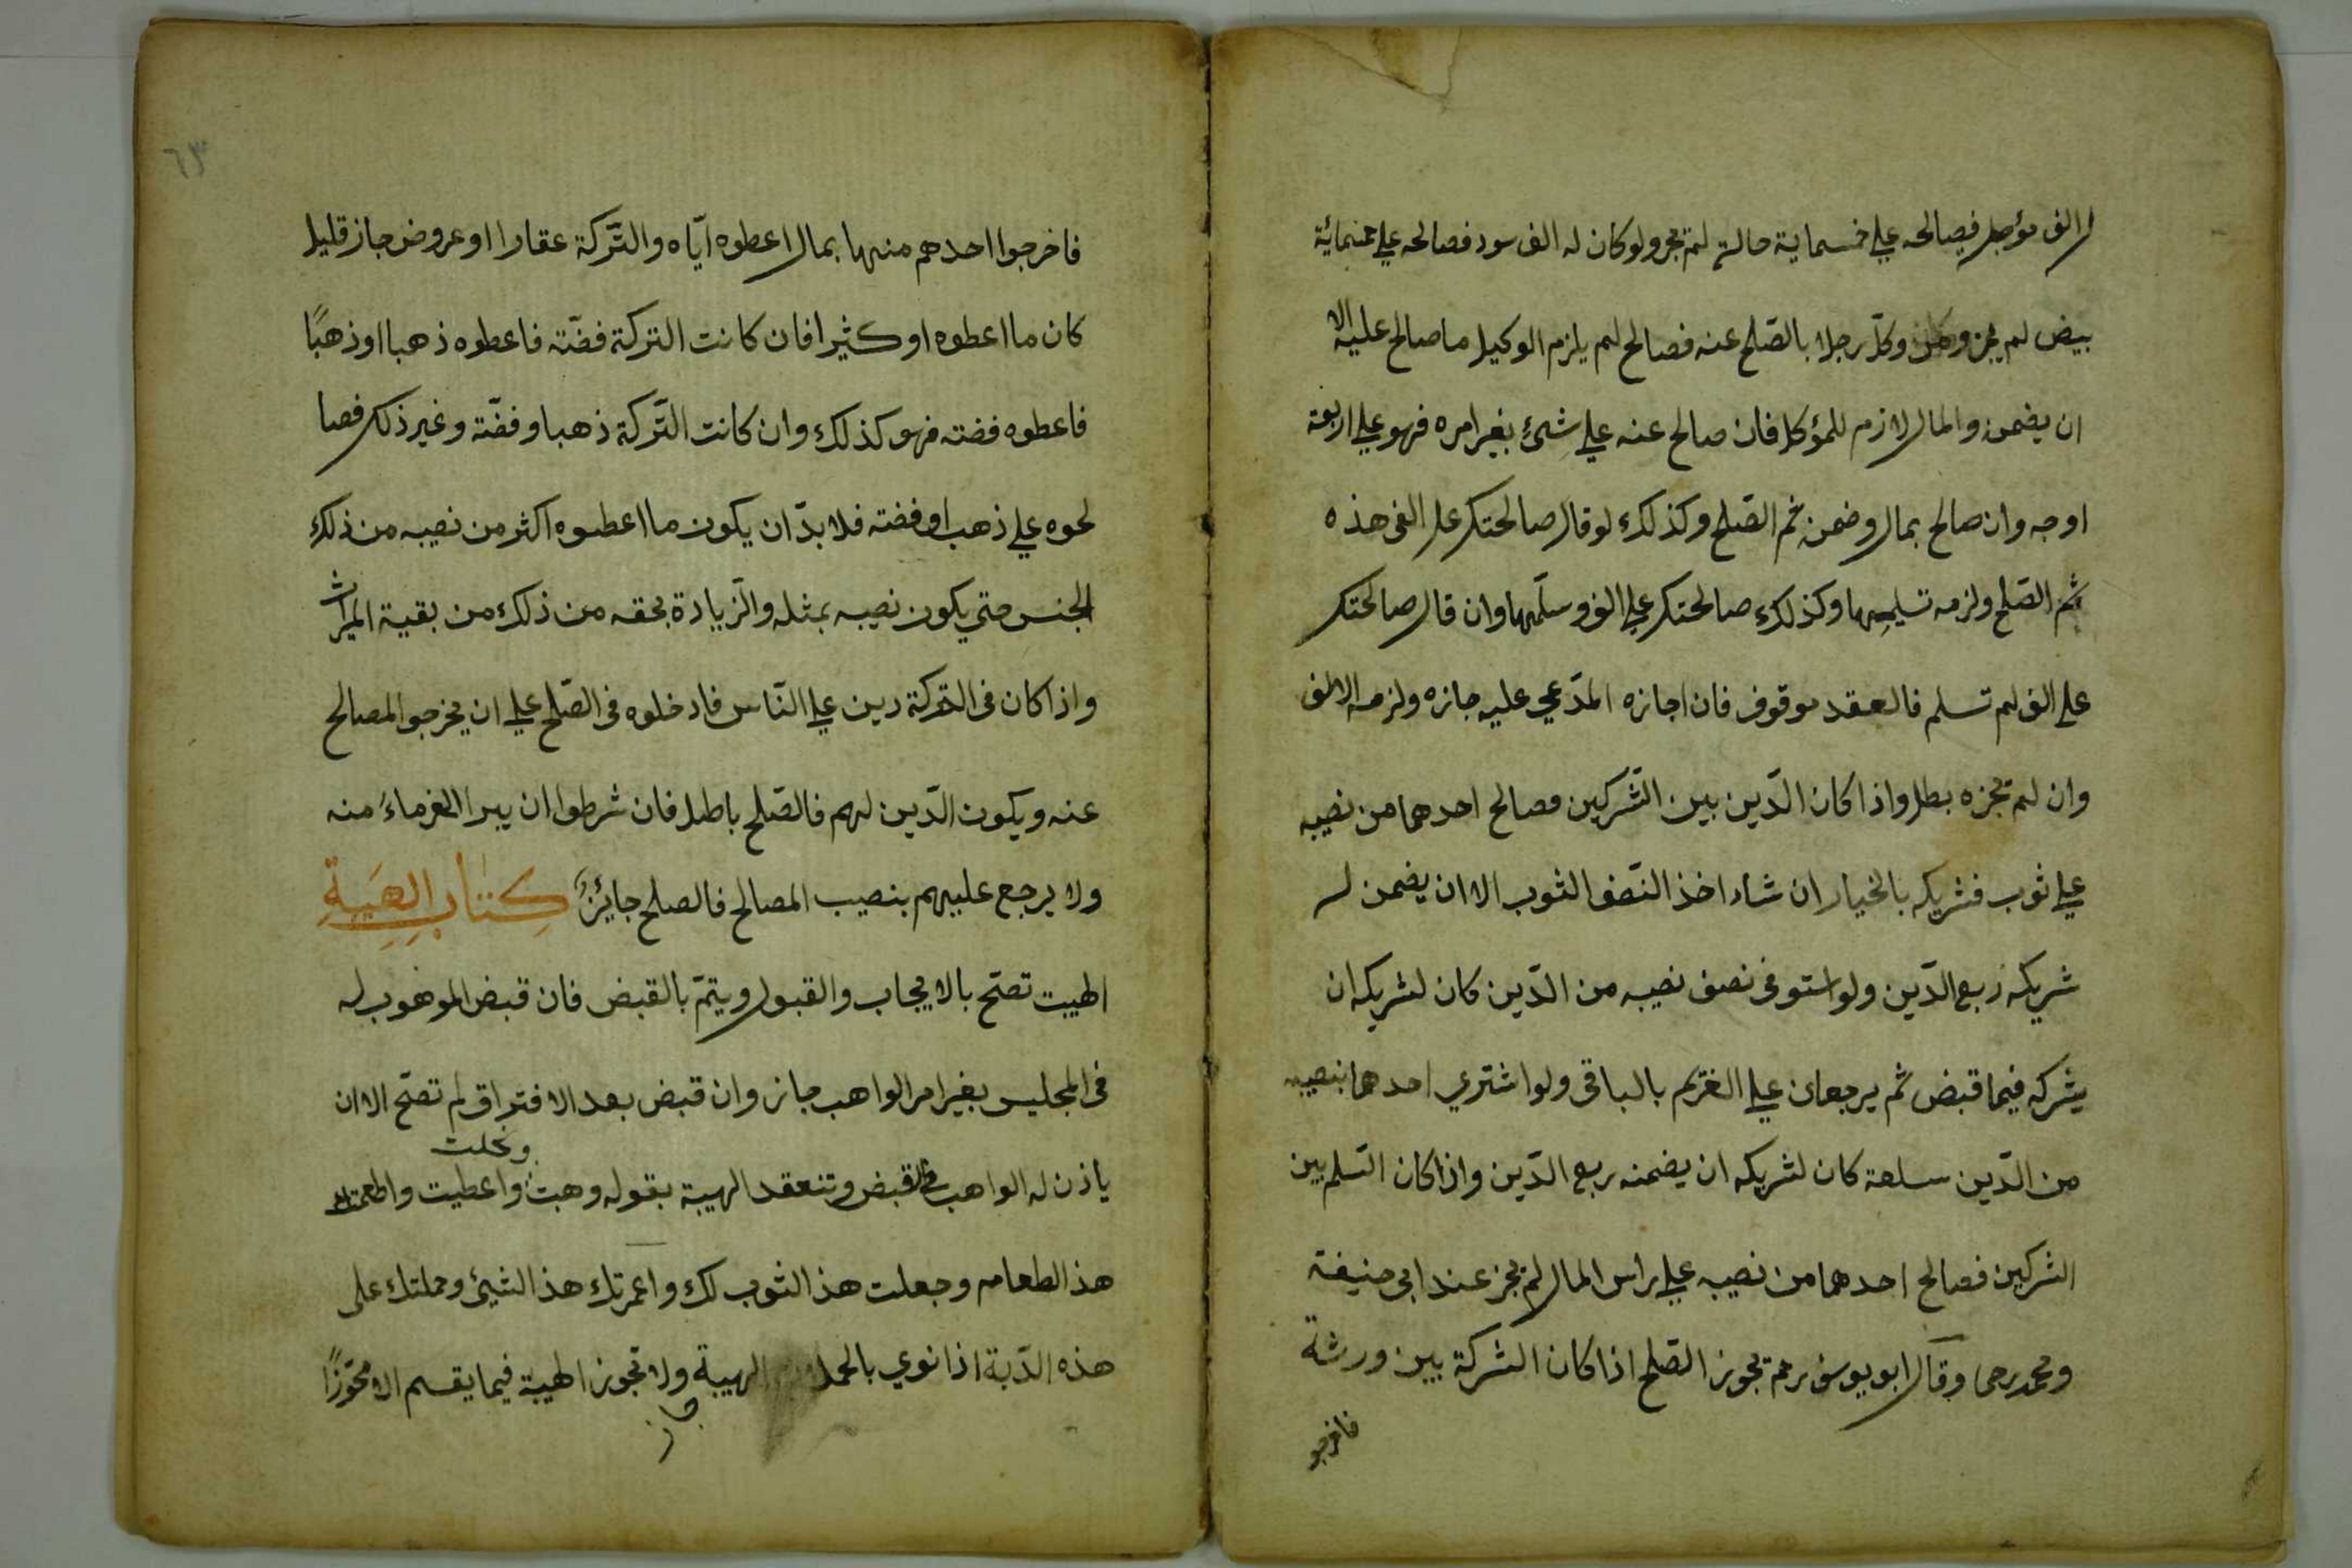 ل الف مؤجل فصالحه علي خمسماية حالة لم تجز ولو كان له الف سود فصالحه علي خمسمائة
بيض لم يجز ومن وكّل رجلا بالصّلح عنه فصالح لم يلزم الوكيل ما صالح عليه الا
ان يضمن والمال لازم للمؤكل فان صالح عنه علي شئ بغير امره فهو علي اربعة
اوجه وان صالح بمال وضمن ثم الصّلح وكذلك لو قال صالحتك علي الفي هذه
ثم الصّلح ولزمه تسليمها وكذلك صالحتك علي الف وسلّمها وان قال صالحتك
علي الف لم تسلم فالعقد موقوف فان اجازه المدّعي عليه جازه ولزمه الالف
وان لم تجزه بطل واذا كان الدّين بين الشّركين فصالح احدهما من نصيبه
علي ثوب فشريكه بالخيار ان شاء اخذ النّصف الثوب الا ان يضمن له
شريكه ربع الدّين ولو استوفى نصف نصيبه من الدّين كان لشريكه ان
يشركه فيما قبض ثم يرجعان علي الغريم بالباقى ولو اشتري احدهما بنصيبه
من الدّين سلعة كان لشريكه ان يضمنه ربع الدّين واذا كان السّلم بين
الشركين فصالح احدهما من نصيبه علي راس المال لم تجز عند ابى حنيفة
ومحمد رحى وقال ابو يوسف رحمه تجوز الصّلح اذا كان الشركة بين ورثة
فاخرجو
٦٣
فاخرجوا احدهم منها بمال اعطوه ايّاه والتّركة عقارا او عروض جاز قليل
كان ما اعطوه او كثيرا فان كانت التركة فضّة فاعطوه ذهبا او ذهبًا
فاعطوه فضته فهو كذلك وان كانت التّركة ذهبا وفضّة وغير ذلك فصا
لحوه علي ذهب او فضته فلا بدّ ان يكون ما اعطوه اكثر من نصيبه من ذلك
الجنس حتي يكون نصيبه بمثله والزّيادة بحقه من ذلك من بقية الميراث
واذا كان فى التّركة دين علي النّاس فادخلوه فى الصّلح علي ان يخرجوا المصالح
عنه ويكون الدّين لهم فالصّلح باطل فان شرطوا ان يبرا الغرماء منه
ولا يرجع عليهم بنصيب المصالح فالصلح جائزٌ كتاب الهبة
الهيبت تصّح بالايجاب والقبول ويتمّ بالقبض فان قبض الموهوب له
فى المجليس بغير امر الواهب جاز وان قبض بعد الافتراق لم تصّح الا ان
ونحلت
ياذن له الواهب فى القبض وتنعقد الهيبة بقوله وهبت واعطيت واطعمتك
هذ الطعام وجعلت هذ الثوب لك واعمرتك هذ الشيئ وحملتك على
هذه الدّبة اذا نوي بالحملان الهيبة ولا تجوز الهيبة فيما يقسم الا محوّزًا
جاز